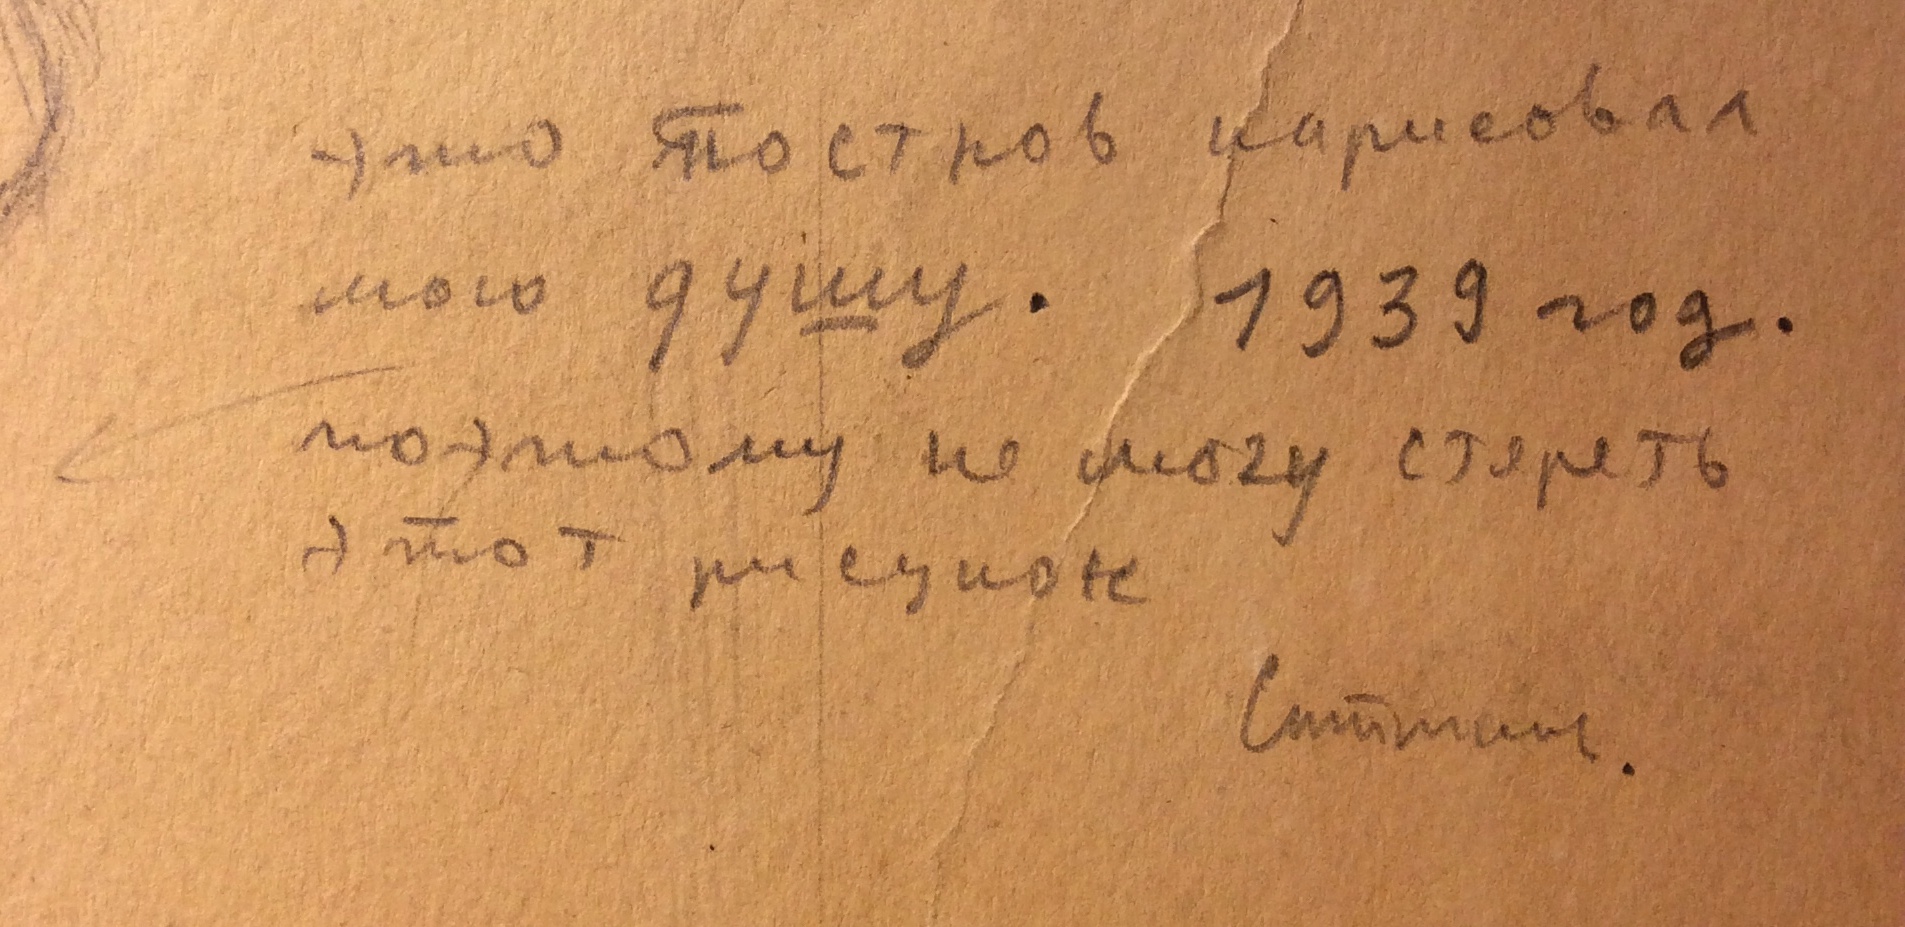 это Постнов нарисовал
мою душу. 1939 год.
поэтому не могу стереть
этот рисунок